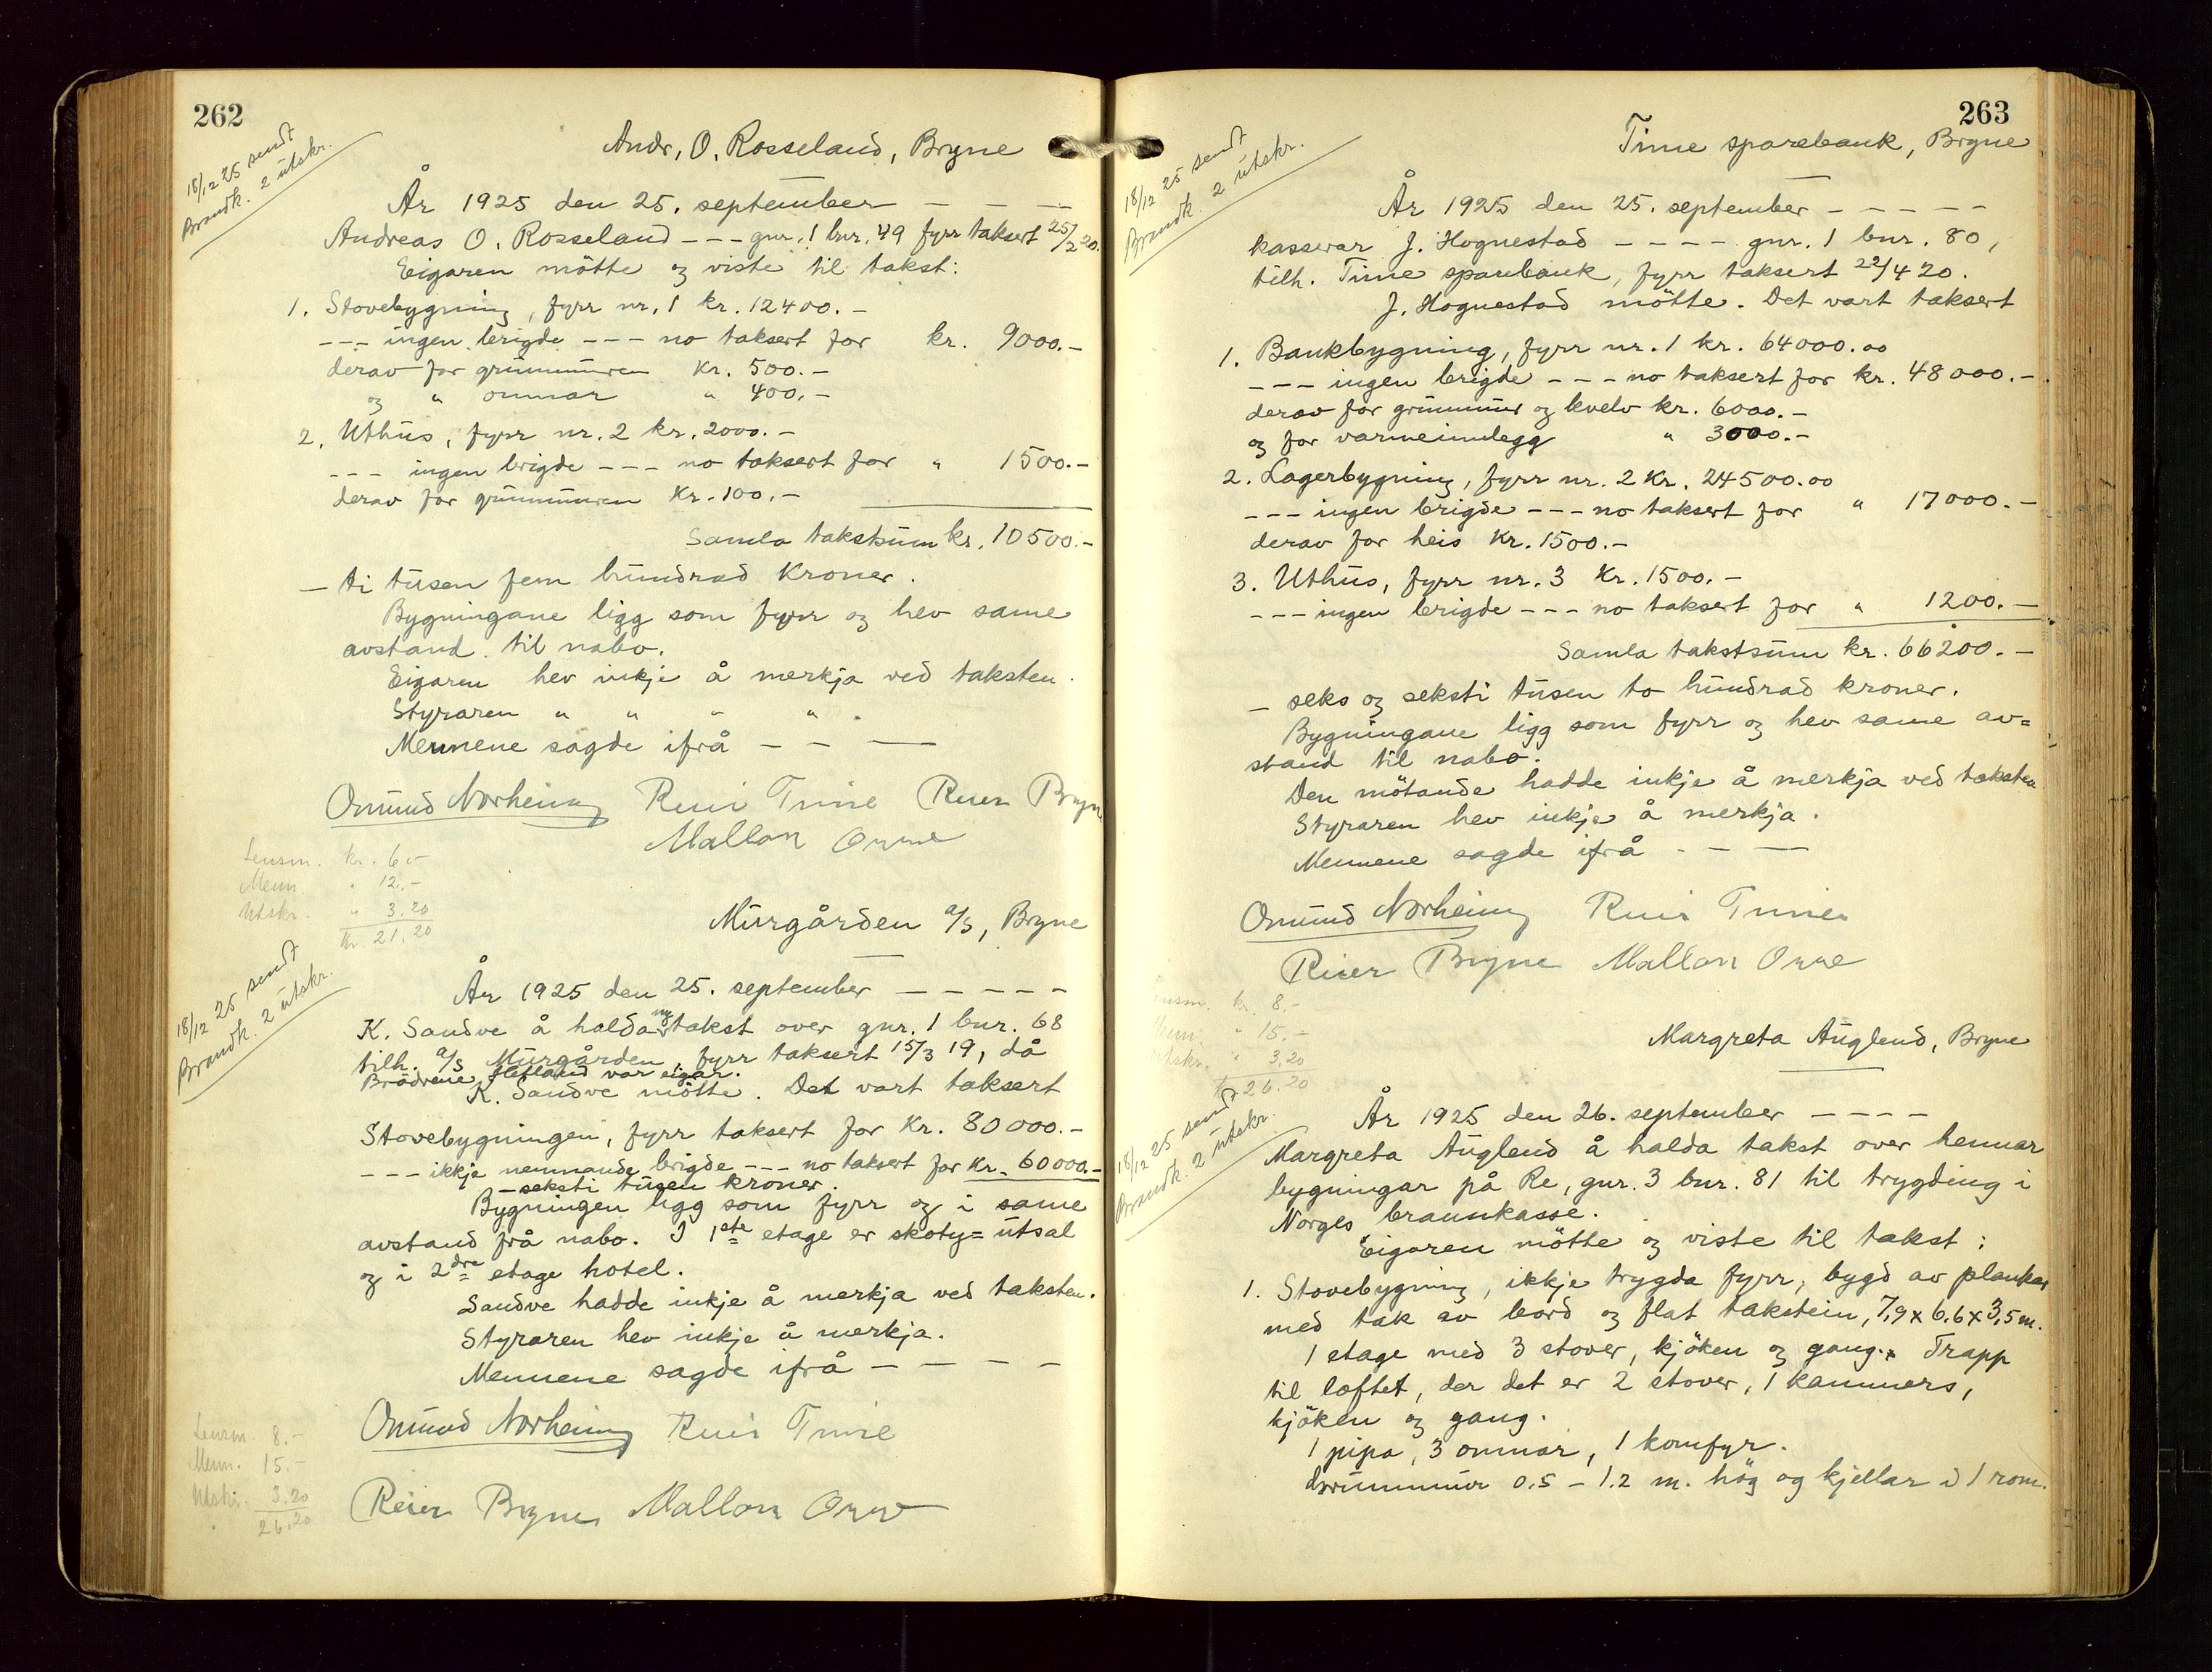 262
18/12 25 sendt
Brandk. 2 utskr.
Andr. O. Rosseland, Bryne
År 1925 den 25. september — — —
Andreas O. Rosseland --- gnr. 1 bnr. 49 fyrr taksert 25/2 20.
Eigaren mötte og viste til takst:
1. Stovebygning, fyrr nr. 1 kr. 12400.-
--- ingen brigde --- no taksert for kr. 9000.-
derav for grunnmuren kr. 500.-
og " omnar " 400.-
2. Uthus, fyrr nr. 2 kr. 2000.-
--- ingen brigde --- no taksert for " 1500.-
derav for grunnmuren kr. 100.-
Samla takstsum kr. 10500.-
— ti tusen fem hundrad kroner.
Bygningane ligg som fyrr og hev same
avstand til nabo.
Eigaren hev inkje å merkja ved taksten.
Styraren " " " " .
Mennene sagde ifrå — — —
Omund Norheim Reier Time Reier Bryne
Mallon Orre
Lensm. kr. 6.-
Menn. " 12.-
Utskr. " 3.20
kr. 21.20
Murgården a/s, Bryne
18/12 25 sendt
Brandk. 2 utskr.
År 1925 den 25. september — — — — —
K. Sandve å halda ny takst over gnr. 1 bnr. 68
tilh. a/s Murgården, fyrr taksert 15/3 19, då
Brödrene Hetland var eigar.
K. Sandve mötte. Det vart taksert
Stovebygningen, fyrr taksert for kr. 80000.-
--- ikkje nemnande brigde --- no taksert for kr. 60000.-
— seksti tusen kroner.
Bygningen ligg som fyrr og i same
avstand frå nabo. I 1ste etage er skoty= utsal
og i 2dre etage hotel.
Sandve hadde inkje å merkja ved taksten.
Styraren hev inkje å merkja.
Mennene sagde ifrå — — — —
Omund Norheim Reier Time
Reier Bryne Mallon Orre
Lensm. 8.-
Menn. 15.-
Utskr. 3.20
26.20
263
18/12 25 sendt
Brandk. 2 utskr.
Time sparebank, Bryne
År 1925 den 25. september — — — — —
kasserar J. Hognestad — — — — gnr. 1 bnr. 80,
tilh. Time sparebank, fyrr taksert 22/4 20.
J. Hognestad mötte. Det vart taksert
1. Bankbygning, fyrr nr. 1 kr. 64000.00
--- ingen brigde --- no taksert for kr. 48000.-
derav for grunnmur og kvelv kr. 6000.-
og for varmeinnlegg " 3000.-
2. Lagerbygning, fyrr nr. 2 kr. 24500.00
--- ingen brigde --- no taksert for " 17000.-
derav for heis kr. 1500.-
3. Uthus, fyrr nr. 3 kr. 1500.-
--- ingen brigde --- no taksert for " 1200.-
Samla takstsum kr. 66200.-
— seks og seksti tusen to hundrad kroner.
Bygningane ligg som fyrr og hev same av=
stand til nabo.
Den mötande hadde inkje å merkja ved taksten
Styraren hev inkje å merkja.
Mennene sagde ifrå - — —
Omund Norheim Reier Time
Reier Bryne Mallon Orre
Lensm. kr. 8.-
Menn. " 15.-
Utskr. " 3.20
kr. 26.20
Margreta Auglend, Bryne
18/12 25 sendt
Brandk. 2 utskr.
År 1925 den 26. september — — — —
Margreta Auglend å halda takst over hennar
bygningar på Re, gnr. 3 bnr. 81 til trygding i
Norges brannkasse.
Eigaren mötte og viste til takst:
1. Stovebygning, ikkje trygda fyrr, bygd av plankar
med tak av bord og flat takstein, 7,9 x 6,6 x 3,5 m.
1 etage med 3 stover, kjöken og gang. Trapp
til loftet, der det er 2 stover, 1 kammers,
kjöken og gang.
1 pipa, 3 omnar, 1 komfyr.
Grunnmur 0.5 - 1.2 m. hög og kjellar i 1 rom.